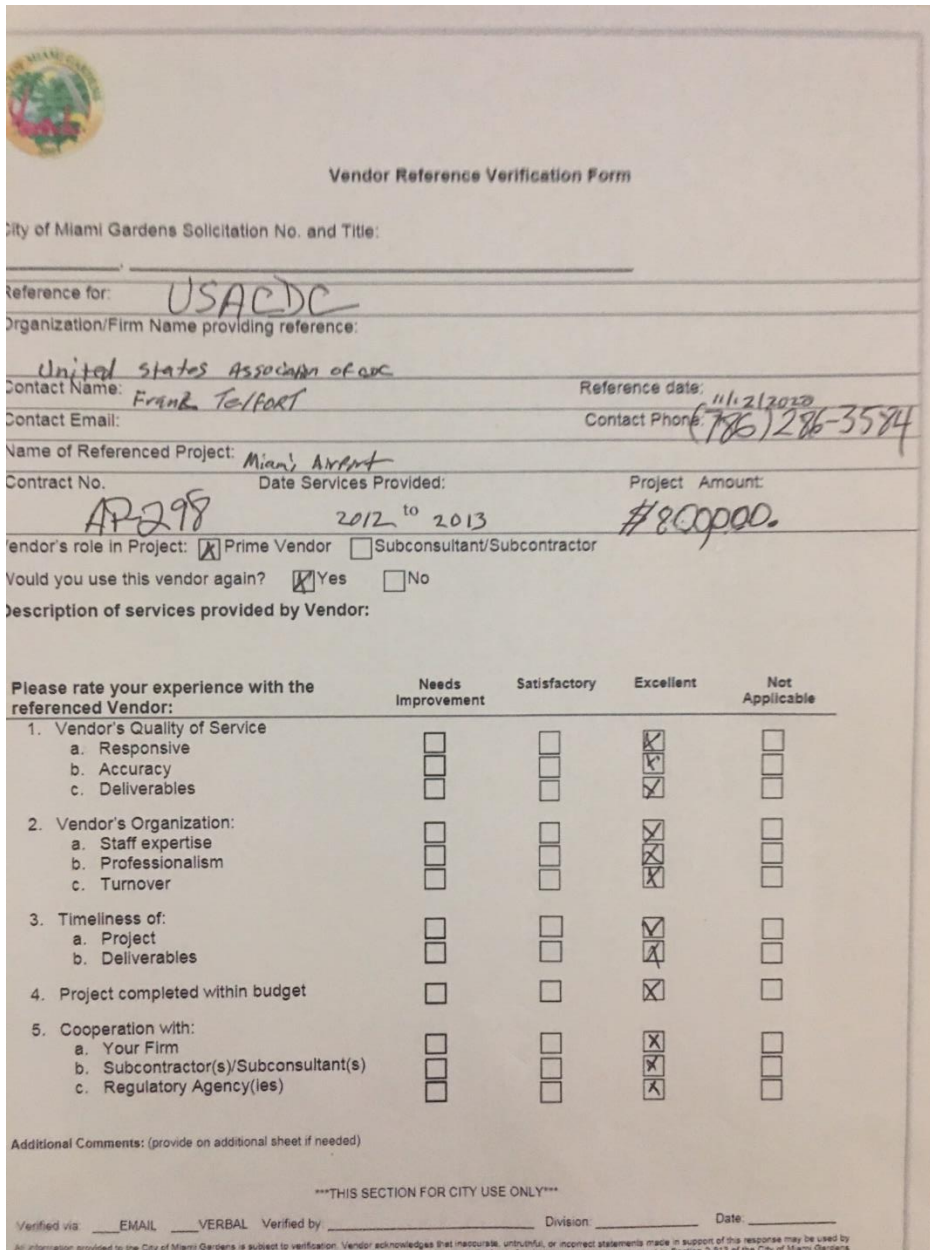 OF MIAMI GARDENS
Vendor Reference Verification Form
City of Miami Gardens Solicitation No. and Title:
Reference for: USACDC
Organization/Firm Name providing reference:
United States Association of CDC
Contact Name: Frank Telfort Reference date: 11/12/2020
Contact Email: Contact Phone: (786) 286-3584
Name of Referenced Project: Miami Airport
Contract No. Date Services Provided: Project Amount:
AP-298 2012 to 2013 $800,000.
Vendor's role in Project: Prime Vendor Subconsultant/Subcontractor
Would you use this vendor again? Yes No
Description of services provided by Vendor:
Please rate your experience with the Needs Satisfactory Excellent Not
referenced Vendor: Improvement Applicable
1. Vendor's Quality of Service
a. Responsive
b. Accuracy
c. Deliverables
2. Vendor's Organization:
a. Staff expertise
b. Professionalism
c. Turnover
3. Timeliness of:
a. Project
b. Deliverables
4. Project completed within budget
5. Cooperation with:
a. Your Firm
b. Subcontractor(s)/Subconsultant(s)
c. Regulatory Agency(ies)
Additional Comments: (provide on additional sheet if needed)
***THIS SECTION FOR CITY USE ONLY***
Verified via: ____EMAIL ____VERBAL Verified by: Division: Date:
All information provided to the City of Miami Gardens is subject to verification. Vendor acknowledges that inaccurate, untruthful, or incorrect statements made in support of this response may be used by